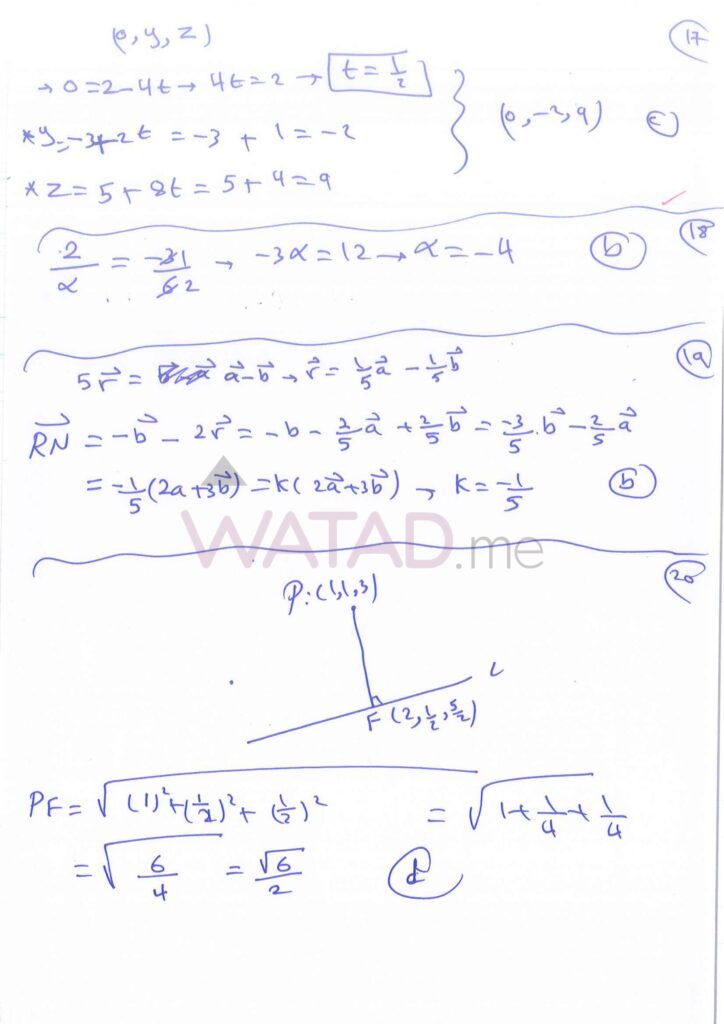 (0, y, z) 17
→ 0 = 2 - 4t → 4t = 2 → t = 1/2
* y = -3 + 2t = -3 + 1 = -2 (0, -2, 9) c
* z = 5 + 8t = 5 + 4 = 9
18
2/α = -3/6 2 → -3α = 12 → α = -4 b
19
5r⃗ = a⃗ - b⃗ → r⃗ = 1/5 a⃗ - 1/5 b⃗
RN⃗ = -b⃗ - 2r⃗ = -b - 2/5 a⃗ + 2/5 b⃗ = -3/5 . b⃗ - 2/5 a⃗
= -1/5 (2a + 3b⃗) = K( 2a⃗ + 3b⃗ ) → K = -1/5 b
WATAD.me
20
P: (1,1,3)
L
F (2, 1/2, 5/2)
PF = √((1)² + (1/2)² + (1/2)²) = √(1 + 1/4 + 1/4)
= √(6/4) = √6/2 d